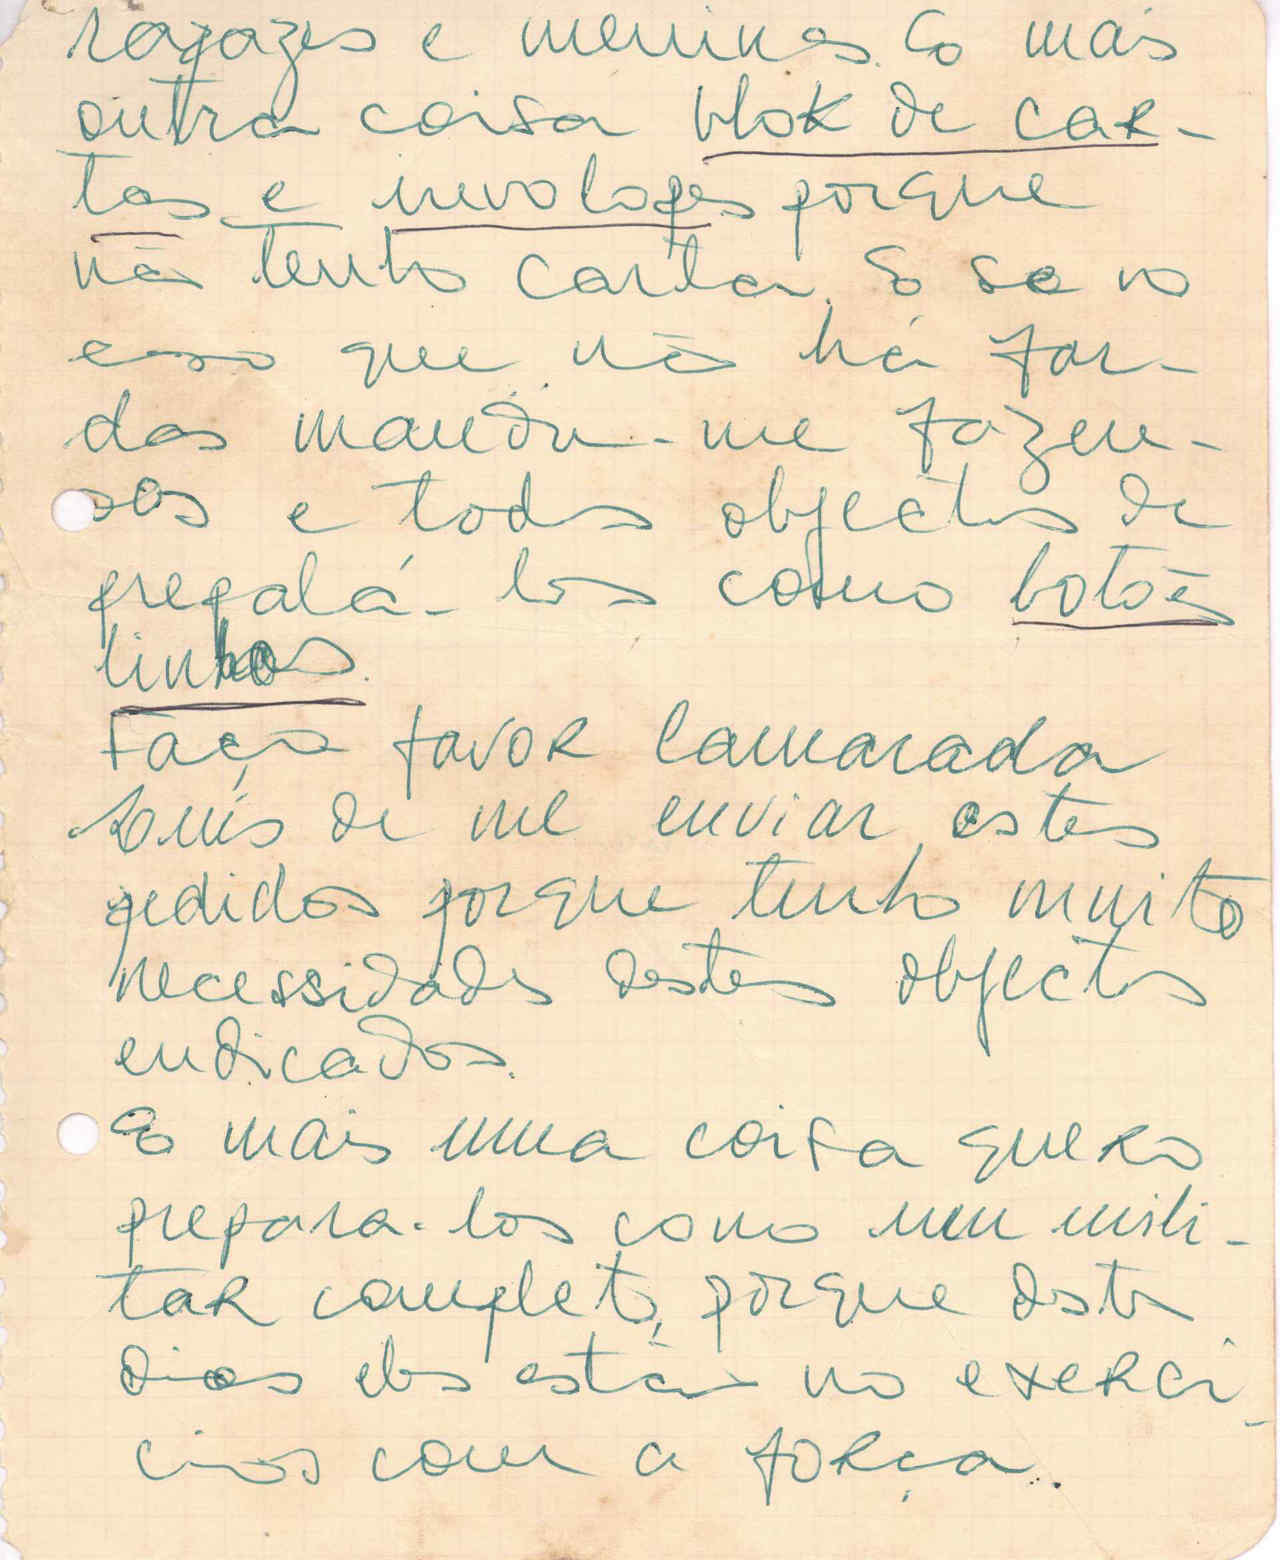 ragazes e meninas. E mais
outra coisa blok de car-
tas e invologes porque
não tenho carta. E se no
caso que não há far-
das manda-me fazen-
das e todos objectos de
pregalá-los como botões
linhas.
Faça favor Camarada
Luís de me enviar estes
pedidos porque tenho muito
necessidades destes objectos
endicados.
E mais uma coisa quero
prepara-los como um mili-
tar completo, porque destes
dias eles estão no exerci-
cios com a força.